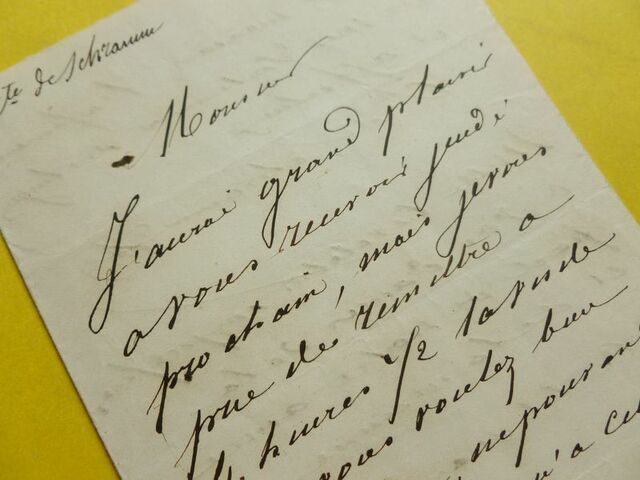 te de Schramm
Monsieur
J'aurai grand plaisir
a vous recevoir jeudi
prochain, mais je vous
prie de remettre a
4 heures 1/2 la visite
vous voulez bien
ne pouvant
qu'a